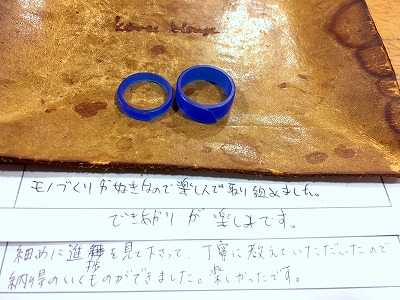 モノづくりが好きなので楽しんで取り組めました。
でき上がりが楽しみです。
細めに進捗を見て下さって、丁寧に教えていただいたので
納得のいくものができました。楽しかったです。